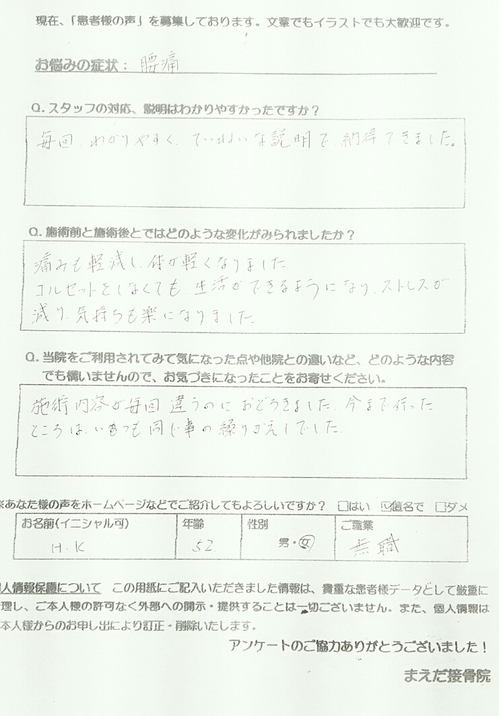 現在、「患者様の声」を募集しております。文章でもイラストでも大歓迎です。
お悩みの症状: 腰痛
Q. スタッフの対応、説明はわかりやすかったですか?
毎回、わかりやすく、ていねいな説明で納得できました。
Q. 施術前と施術後とではどのような変化がみられましたか?
痛みも軽減し、体が軽くなりました
コルセットをしなくても、生活ができるようになり、ストレスが
減り、気持ちも楽になりました。
Q. 当院をご利用されてみて気になった点や他院との違いなど、どのような内容
でも構いませんので、お気づきになったことをお寄せください。
施術内容が毎回違うのにおどろきました。今まで行った
ところは、いつも同じ事の繰りかえしでした。
※あなた様の声をホームページなどでご紹介してもよろしいですか? □はい ☑匿名で □ダメ
お名前(イニシャル可) 年齢 性別 ご職業
H.K 52 男・女 無職
個人情報保護について この用紙にご記入いただきました情報は、貴重な患者様データとして厳重に
管理し、ご本人様の許可なく外部への開示・提供することは一切ございません。また、個人情報は
本人様からのお申し出により訂正・削除いたします。
アンケートのご協力ありがとうございました!
まえだ接骨院